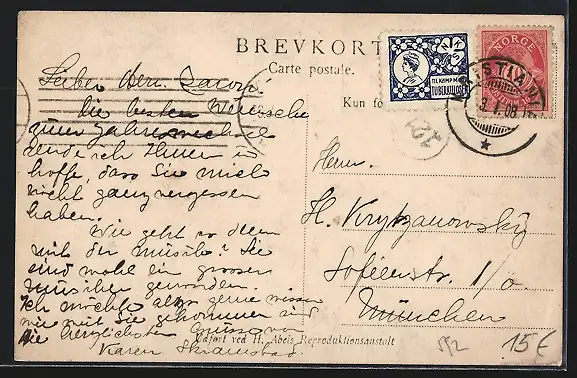 BREVKORT
Carte postale.
Kun for
TIL KAMP MOT
TUBERKULOSEN
NORGE
KRISTIANIA
3 I 08
Lieber Herr Baron.
die besten Wünsche
zum Jahreswechsel
sende ich Ihnen u
hoffe, dass Sie mich
nicht ganz vergessen
haben.
Wie geht es denn
mit der Musik? Sie
sind wohl ein grosser
Musiker geworden.
Ich möchte gerne wissen
wie weit Sie gekommen sind
die herzlichsten Grüsse von
Karen
Herrn.
H. Kryzanowsky
Sofienstr. 1/0
München
Udført ved H. Abels Reproduktionsanstalt
15€